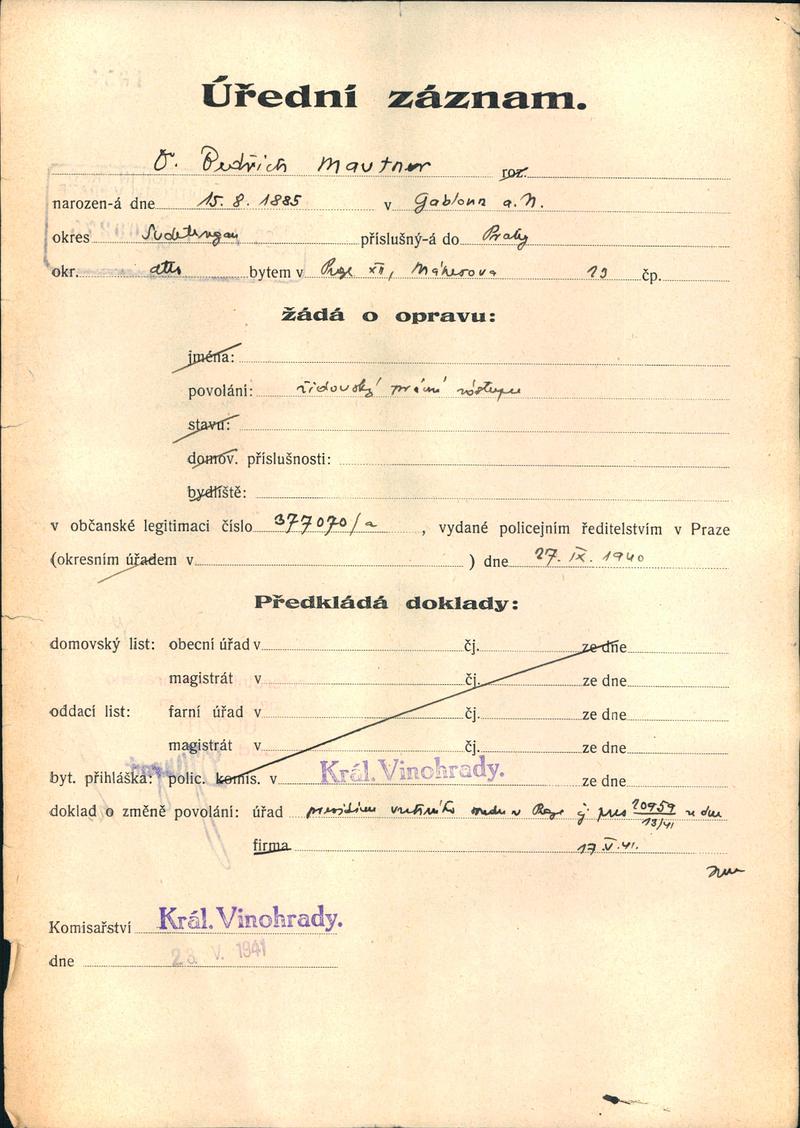 Úřední záznam.
Bedřich Mautner roz.
narozen-á dne 15. 8. 1885 v Gablonz a. N.
okres Sudetengau příslušný-á do Prahy
okr. dtto bytem v Praze XII, 19 čp.
žádá o opravu:
jména:
povolání: židovský právní zástupce
stavu:
domov. příslušnosti:
bydliště:
v občanské legitimaci číslo 377070/a , vydané policejním ředitelstvím v Praze
(okresním úřadem v ) dne 27. IX. 1940
Předkládá doklady:
domovský list: obecní úřad v čj. ze dne
magistrát v čj. ze dne
oddací list: farní úřad v čj. ze dne
magistrát v čj. ze dne
byt. přihláška: polic. komis. v Král. Vinohrady. ze dne
doklad o změně povolání: úřad presidium vrchního soudu v Praze čj pres 20959/13/41 ze dne
firma 17. V. 41.
Komisařství Král. Vinohrady.
dne 23. V. 1941